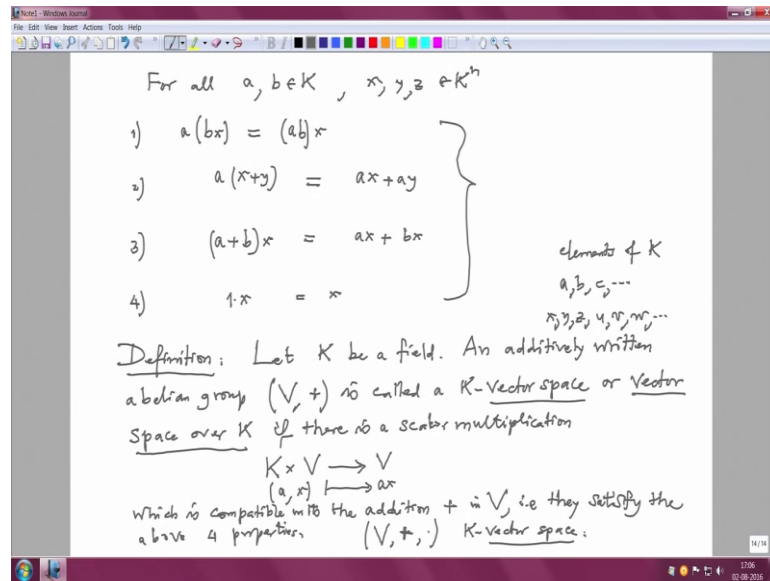 Note1 - Windows Journal
File Edit View Insert Actions Tools Help
For all a, b ∈ K , x, y, z ∈ K^n
1) a(bx) = (ab)x
2) a(x+y) = ax+ay
3) (a+b)x = ax + bx
4) 1·x = x
elements of K
a, b, c, ---
x, y, z, u, v, w, ---
Definition: Let K be a field. An additively written
abelian group (V, +) is called a K-vector space or vector
space over K if there is a scalar multiplication
K × V ⟶ V
(a, x) ⟼ ax
which is compatible with the addition + in V, i.e they satisfy the
above 4 properties. (V, +, ·) K-vector space.
14/14
17:06
02-08-2016